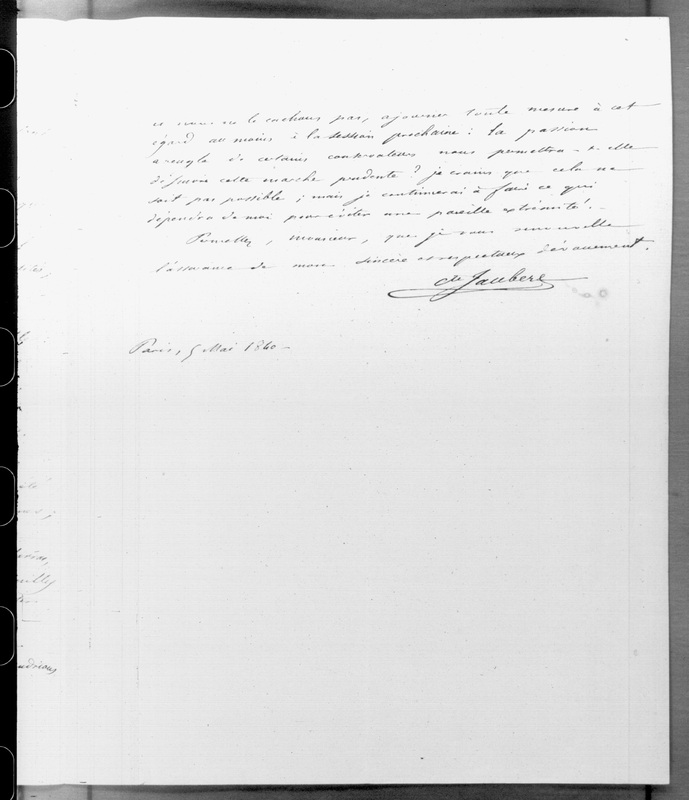 ne le cachons pas, ajourner toute mesure à cet
égard au moins à la session prochaine : la passion
aveugle de certains conservateurs nous permettra-t-elle
de suivre cette marche prudente ? je crains que cela ne
soit pas possible ; mais je continuerai à faire ce qui
dépendra de moi pour éviter une pareille extrémité. -
Permettez, Monsieur, que je vous renouvelle
l'assurance de mon sincère et respectueux dévouement.
Jaubert
Paris, 5 Mai 1840 -